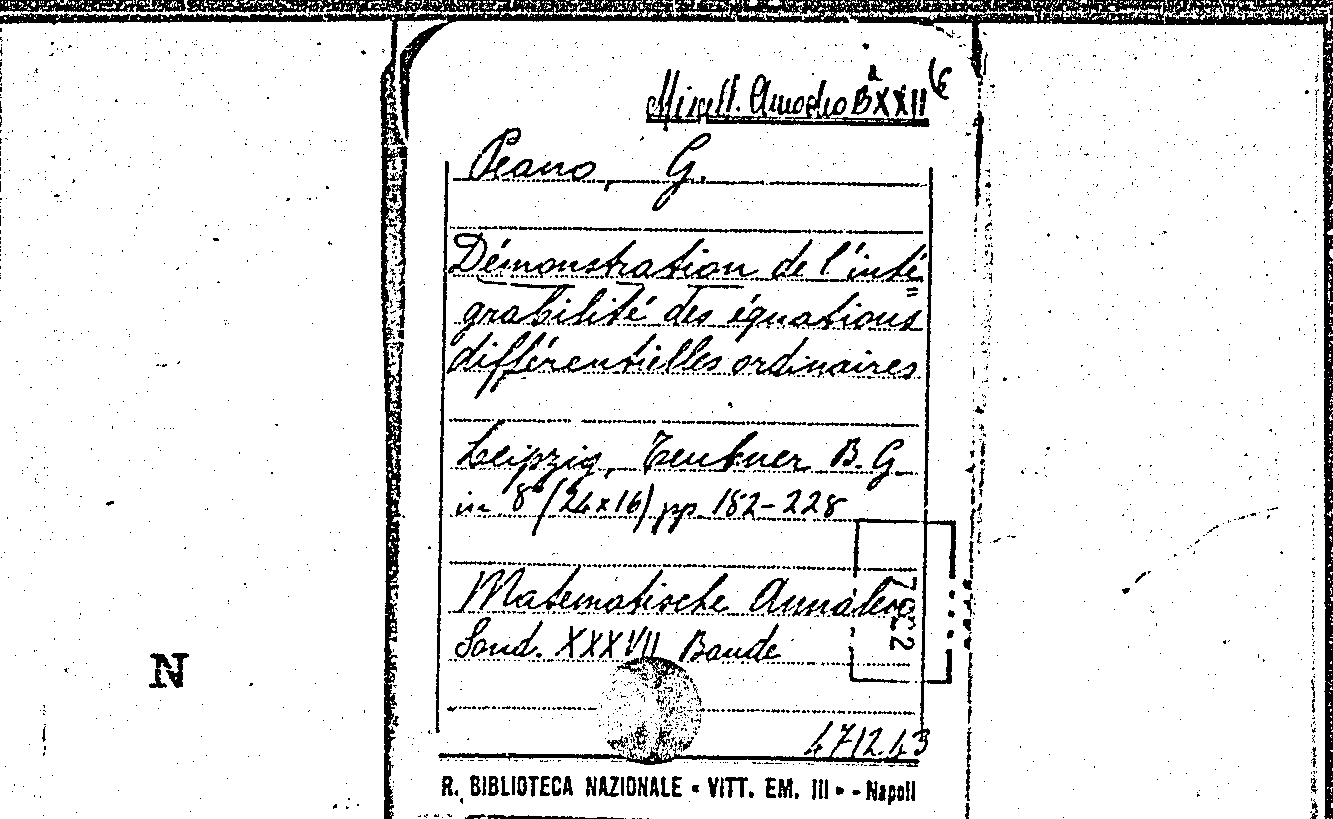 Miscell. Amodeo B XXII
Peano, G.
Démonstration de l'inté
grabilité des équations
différentielles ordinaires
Leipzig, Teubner B. G.
in 8° (24x16) pp. 182-228
Matematische Annalen
Sond. XXXVII Bande
471243
R. BIBLIOTECA NAZIONALE « VITT. EM. III » - Napoli
N